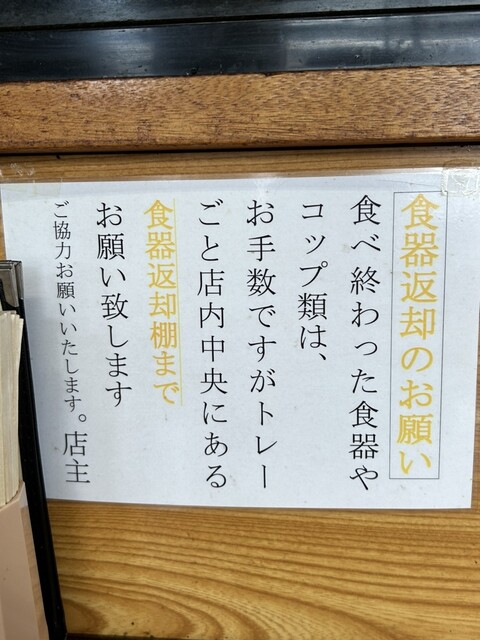 食器返却のお願い
食べ終わった食器や
コップ類は、
お手数ですがトレー
ごと店内中央にある
食器返却棚まで
お願い致します
ご協力お願いいたします。店主